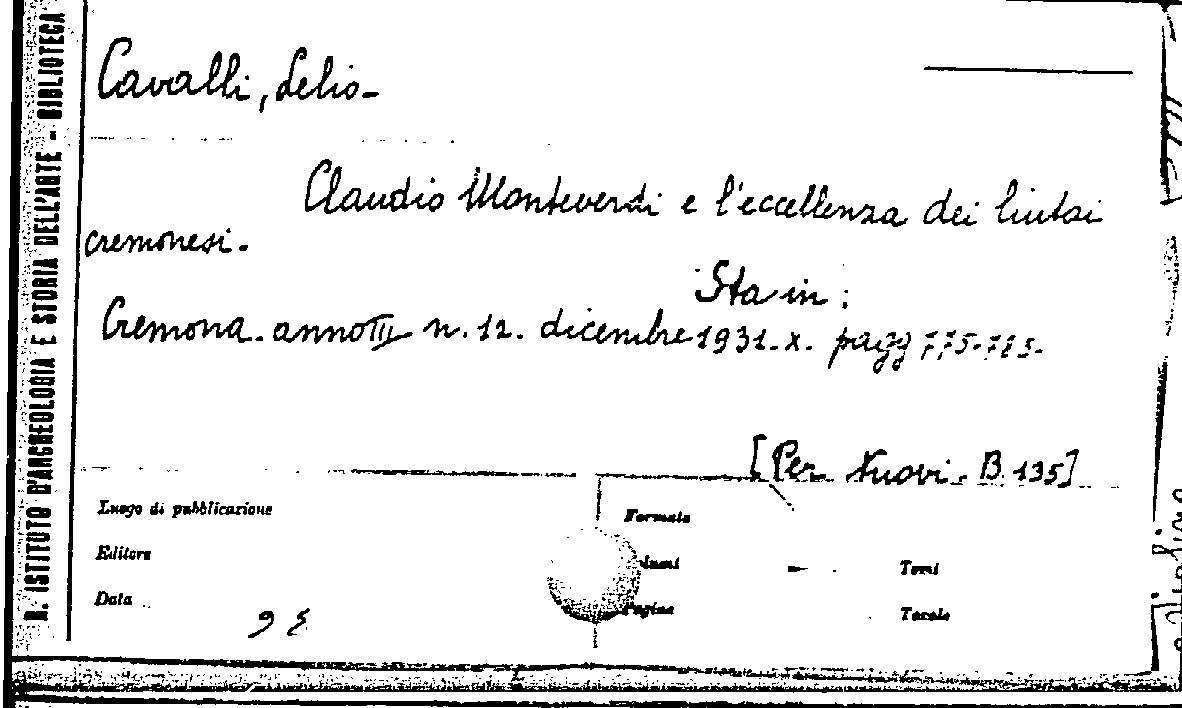 R. ISTITUTO D'ARCHEOLOGIA E STORIA DELL'ARTE - BIBLIOTECA
Cavalli, Lelio-
Claudio Monteverdi e l'eccellenza dei liutai
cremonesi.
Sta in:
Cremona. anno III n. 12. dicembre 1931. X. pagg 775-785-
[Per Nuovi. B. 135]
Luogo di pubblicazione
Editore
Data
Formato
Pagine
Tomi
Tavole